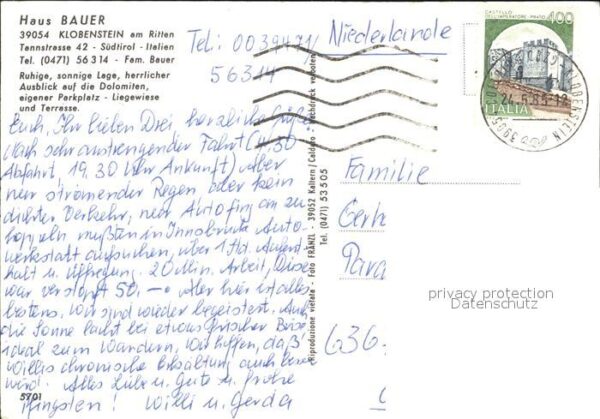 Haus BAUER
39054 KLOBENSTEIN am Ritten
Tennstrasse 42 - Südtirol - Italien
Tel. (0471) 56314 - Fam. Bauer
Ruhige, sonnige Lage, herrlicher
Ausblick auf die Dolomiten,
eigener Parkplatz - Liegewiese
und Terrasse.
Tel: 0039471/
56314
Niederlande
CASTELLO
DELL'IMPERATORE - PRATO
400
ITALIA
KLOBENSTEIN
24.5.85-12
Euch, Ihr lieben Drei herzliche Grüße
Nach sehr anstrengender Fahrt (4.30
Abfahrt, 19,30 Uhr Ankunft) Aber
nur strömender Regen oder kein
dichter Verkehr, nur Auto fing an zu
hoppeln mußten in Innsbruck Auto-
werkstatt aufsuchen, über 1 Std. Aufent-
halt u. Aufregung. 20 Min. Arbeit, Düse
war verstopft 50,- Aber hier ist alles
bestens. Wir sind wieder begeistert. Auch
die Sonne lacht bei etwas frischer Brise
ideal zum Wandern. Wir hoffen, daß
Willis chronische Erkältung auch besser
wird. Alles Liebe u. Gute u. frohe
Pfingsten! Willi u. Gerda
5701
Riproduzione vietata - Foto FRÄNZL - 39052 Kaltern/Caldaro - Nachdruck verboten
Tel. (0471) 53505
Familie
Gerh
Para
636
privacy protection
Datenschutz